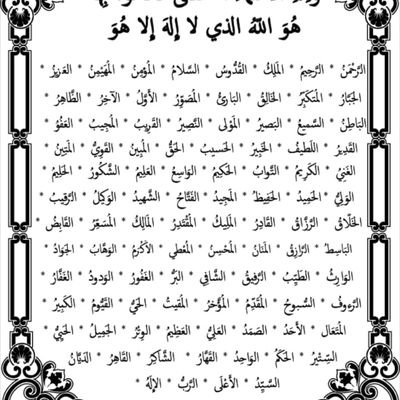 هُوَ اللهُ الَّذِي لَا إِلٰهَ إِلَّا هُوَ
الرَّحْمٰنُ * الرَّحِيمُ * المَلِكُ * القُدُّوسُ * السَّلَامُ * المُؤْمِنُ * المُهَيْمِنُ * العَزِيزُ *
الجَبَّارُ * المُتَكَبِّرُ * الخَالِقُ * البَارِئُ * المُصَوِّرُ * الأَوَّلُ * الآخِرُ * الظَّاهِرُ *
البَاطِنُ * السَّمِيعُ * البَصِيرُ * المَوْلَى * النَّصِيرُ * القَرِيبُ * المُجِيبُ * العَفُوُّ *
القَدِيرُ * اللَّطِيفُ * الخَبِيرُ * الحَسِيبُ * الحَقُّ * المُبِينُ * القَوِيُّ * المَتِينُ *
الغَنِيُّ * الكَرِيمُ * التَّوَّابُ * الحَكِيمُ * الوَاسِعُ * العَلِيمُ * الشَّكُورُ * الحَلِيمُ *
الوَلِيُّ * الحَمِيدُ * الحَفِيظُ * المَجِيدُ * الفَتَّاحُ * الشَّهِيدُ * الوَكِيلُ * الرَّقِيبُ *
الخَلَّاقُ * الرَّزَّاقُ * القَادِرُ * المَلِيكُ * المُقْتَدِرُ * المَالِكُ * المُسَعِّرُ * القَابِضُ *
البَاسِطُ * الرَّازِقُ * المَنَّانُ * المُحْسِنُ * المُعْطِي * الأَكْرَمُ * الوَهَّابُ * الجَوَادُ *
الوَارِثُ * الطَّيِّبُ * الرَّفِيقُ * الشَّافِي * البَرُّ * الغَفُورُ * الوَدُودُ * الغَفَّارُ *
الرَّءُوفُ * السُّبُّوحُ * المُقَدِّمُ * المُؤَخِّرُ * المُقِيتُ * الحَيُّ * القَيُّومُ * الكَبِيرُ *
المُتَعَالُ * الأَحَدُ * الصَّمَدُ * العَلِيُّ * العَظِيمُ * الوِتْرُ * الجَمِيلُ * الحَيِيُّ *
السِّتِّيرُ * الحَكَمُ * الوَاحِدُ * القَهَّارُ * الشَّاكِرُ * القَاهِرُ * الدَّيَّانُ *
السَّيِّدُ * الأَعْلَى * الرَّبُّ * الإِلٰهُ *